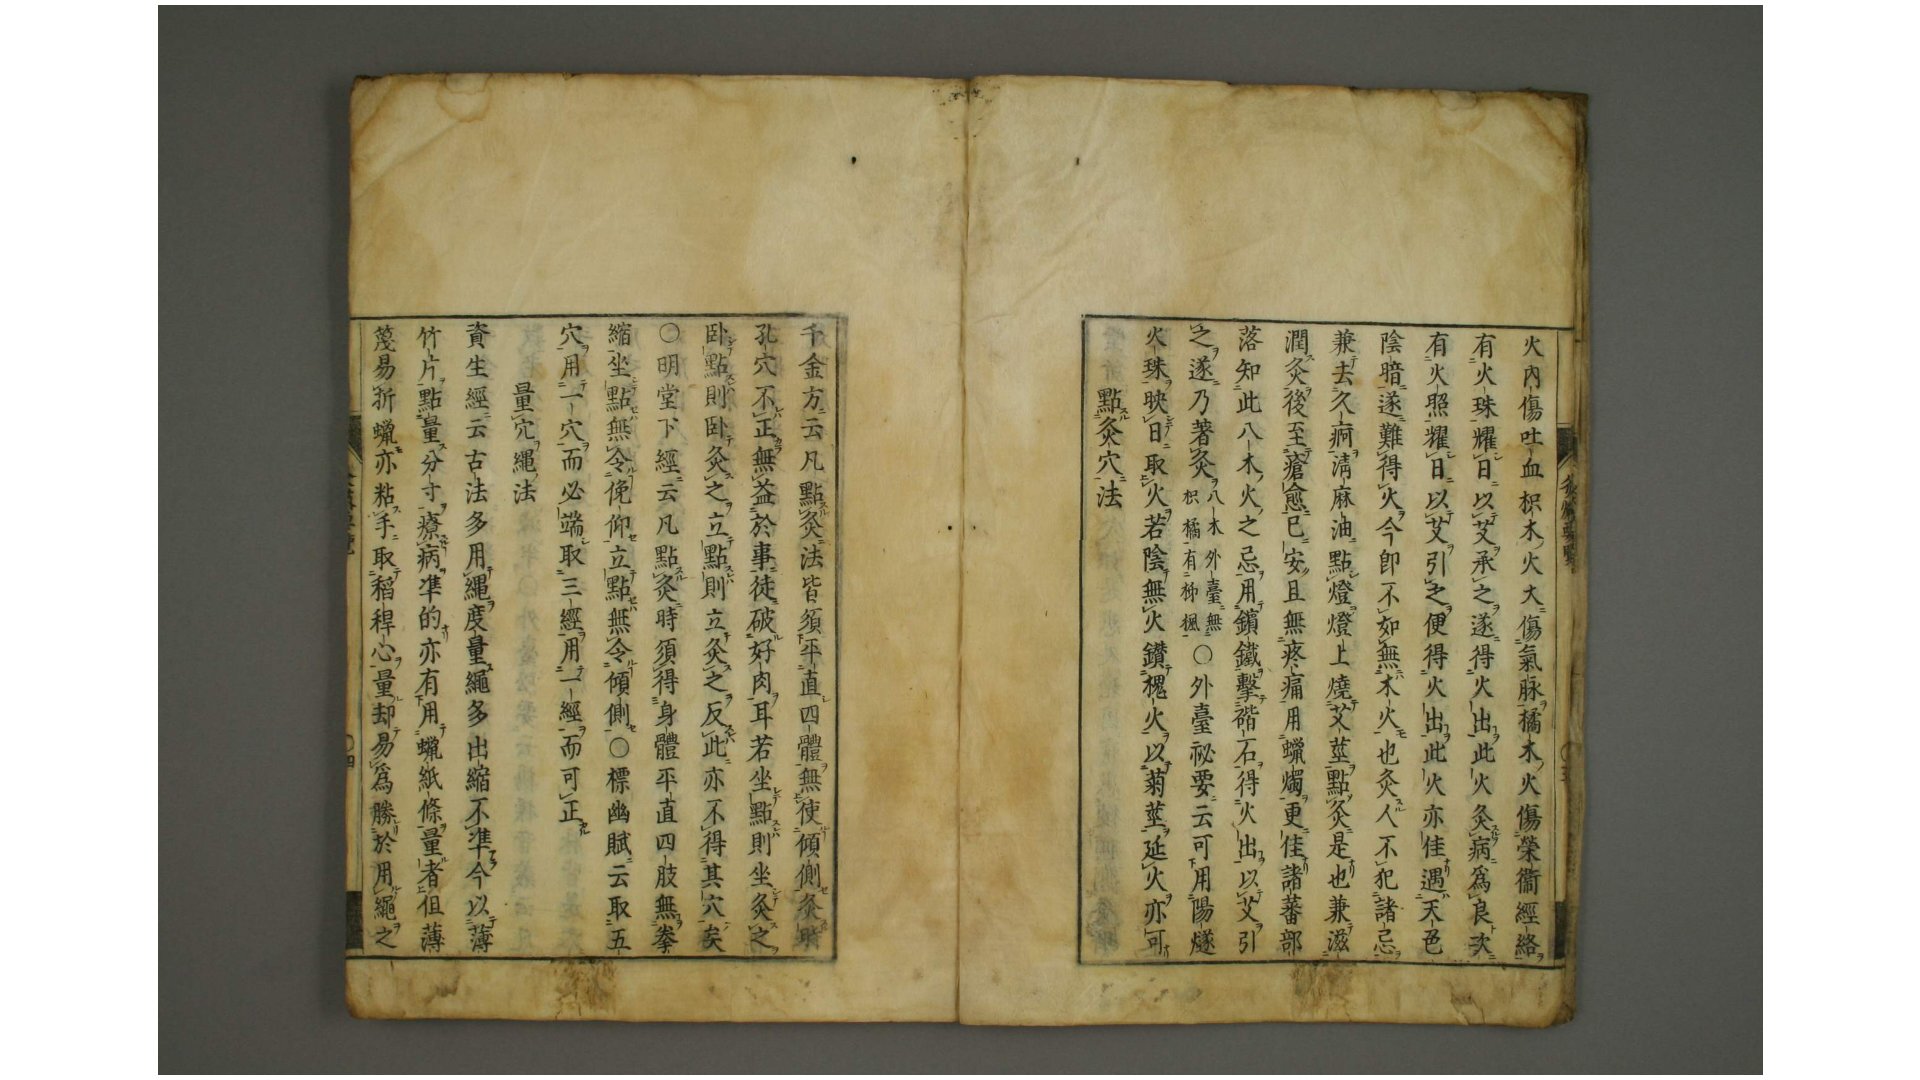 火內傷吐血枳木火大傷氣脉橘木火傷榮衞經絡
有火珠耀日以艾承之遂得火出此火灸病爲良次
有火照耀日以艾引之便得火出此火亦佳遇天色
陰暗遂難得火今即不如無木火也灸人不犯諸忌
兼去久痾清麻油點燈燈上燒艾莖點灸是也兼滋
潤灸後至瘡愈已安且無疼痛用蠟燭更佳諸蕃部
落知此八木火之忌用鑌鐵擊䃈石得火出以艾引
之遂乃著灸八木外臺無枳橘有柳楓〇外臺祕要云可用陽燧
火珠映日取火若陰無火鑚槐火以菊莖延火亦可
點灸穴法
千金方云凡點灸法皆須平直四體無使傾側灸時
孔穴不正無益於事徒破好肉耳若坐點則坐灸之
卧點則卧灸之立點則立灸之反此亦不得其穴矣
〇明堂下經云凡點灸時須得身體平直四肢無拳
縮坐點無令俛仰立點無令傾側〇標幽賦云取五
穴用一穴而必端取三經用一經而可正
量穴繩法
資生經云古法多用繩度量繩多出縮不準今以薄
竹片點量分寸療病準的亦有用蠟紙條量者但薄
篾易折蠟亦粘手取稻稈心量却易爲勝於用繩之